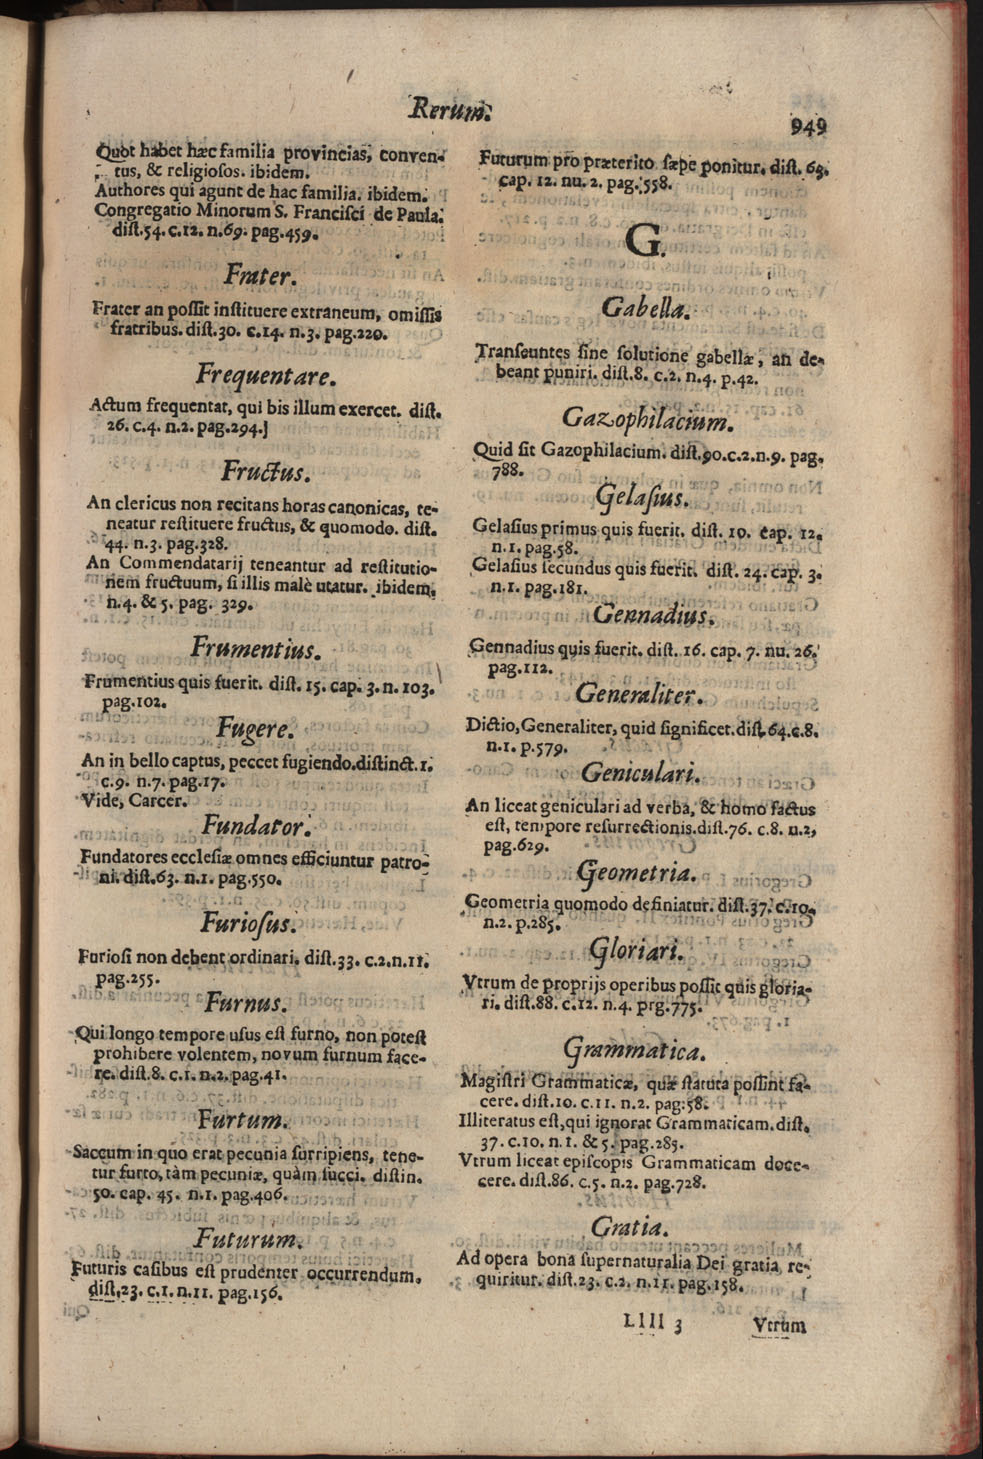 Rerum.
949
Quot habet hæc familia provincias, conven-
tus, & religiosos. ibidem.
Authores qui agunt de hac familia. ibidem.
Congregatio Minorum S. Francisci de Paula.
dist.54. c.12. n.69. pag.459.
Frater.
Frater an possit instituere extraneum, omissis
fratribus. dist.30. c.14. n.3. pag.220.
Frequentare.
Actum frequentat, qui bis illum exercet. dist.
26. c.4. n.2. pag.294.]
Fructus.
An clericus non recitans horas canonicas, te-
neatur restituere fructus, & quomodo. dist.
44. n.3. pag.328.
An Commendatarij teneantur ad restitutio-
nem fructuum, si illis malè utatur. ibidem,
n.4. & 5. pag. 329.
Frumentius.
Frumentius quis fuerit. dist. 15. cap. 3. n. 103.
pag.102.
Fugere.
An in bello captus, peccet fugiendo.distinct.1.
c.9. n.7. pag.17.
Vide, Carcer.
Fundator.
Fundatores ecclesiæ omnes efficiuntur patro-
ni. dist.63. n.1. pag.550.
Furiosus.
Furiosi non debent ordinari. dist.33. c.2.n.11.
pag.255.
Furnus.
Qui longo tempore usus est furno, non potest
prohibere volentem, novum furnum face-
re. dist.8. c.1. n.2. pag.41.
Furtum.
Saccum in quo erat pecunia surripiens, tene-
tur furto, tàm pecuniæ, quàm succi. distin.
50. cap. 45. n.1. pag.406.
Futurum.
Futuris casibus est prudenter occurrendum.
dist.23. c.1. n.11. pag.156.
Futurum pro præterito sæpe ponitur. dist. 63.
cap. 12. nu. 2. pag. 558.
G.
Gabella.
Transeuntes sine solutione gabellæ, an de-
beant puniri. dist.8. c.2. n.4. p.42.
Gazophilacium.
Quid sit Gazophilacium. dist.90.c.2.n.9. pag.
788.
Gelasius.
Gelasius primus quis fuerit. dist. 10. cap. 12.
n.1. pag.58.
Gelasius secundus quis fuerit. dist. 24. cap. 3.
n.1. pag.181.
Gennadius.
Gennadius quis fuerit. dist. 16. cap. 7. nu. 26.
pag.112.
Generaliter.
Dictio, Generaliter, quid significet.dist.64.c.8.
n.1. p.579.
Geniculari.
An liceat geniculari ad verba, & homo factus
est, tempore resurrectionis.dist.76. c.8. n.2,
pag.629.
Geometria.
Geometria quomodo definiatur. dist.37. c.10.
n.2. p.285.
Gloriari.
Vtrum de proprijs operibus possit quis gloria-
ri. dist.88. c.12. n.4. prg.775.
Grammatica.
Magistri Grammaticæ, quæ statuta possint fa-
cere. dist.10. c.11. n.2. pag.58.
Illiteratus est, qui ignorat Grammaticam.dist.
37. c.10. n.1. & 5. pag.285.
Vtrum liceat episcopis Grammaticam doce-
cere. dist.86. c.5. n.2. pag.728.
Gratia.
Ad opera bona supernaturalia Dei gratia re-
quiritur. dist.23. c.2. n.11. pag.158.
Llll 3
Vtrum